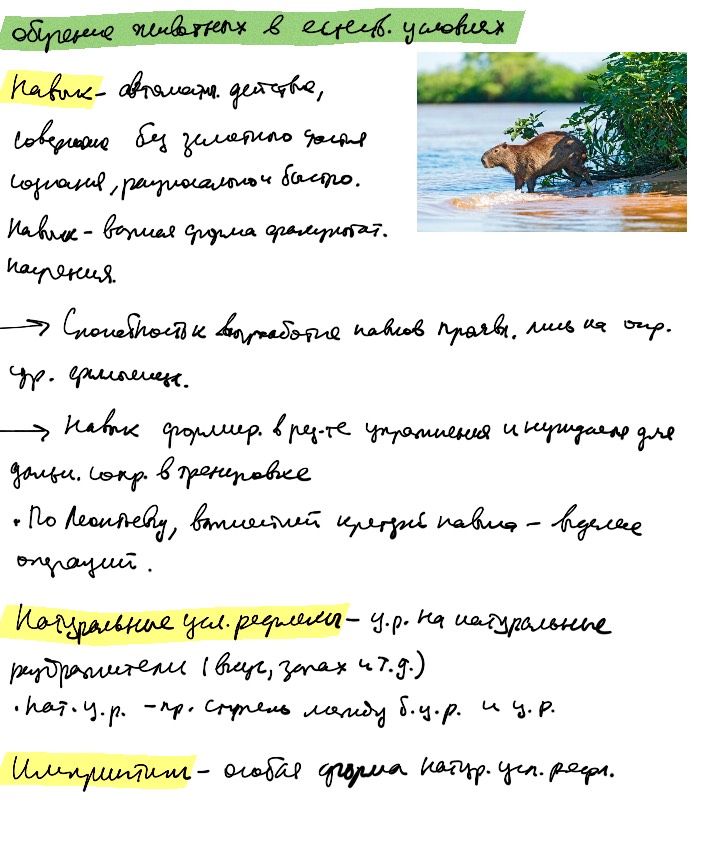 обучение животных в естеств. условиях
Навык - автоматич. действие,
совершаемое без заметного участия
сознания, рационально и быстро.
Навык - важная форма факультат.
научения.
→ Способность к выработке навыков проявл. лишь на опр.
ур. филогенеза.
→ Навык формир. в рез-те упражнения и нуждается для
дальн. сохр. в тренировке
• По Леонтьеву, важнейший критерий навыка - выделение
операций.
Натуральные усл. рефлексы - у.р. на натуральные
раздражители (вкус, запах и т.д.)
• Нат. у.р. - пр. ступень между б.у.р. и у.р.
Импринтинг - особая форма натур. усл. рефл.